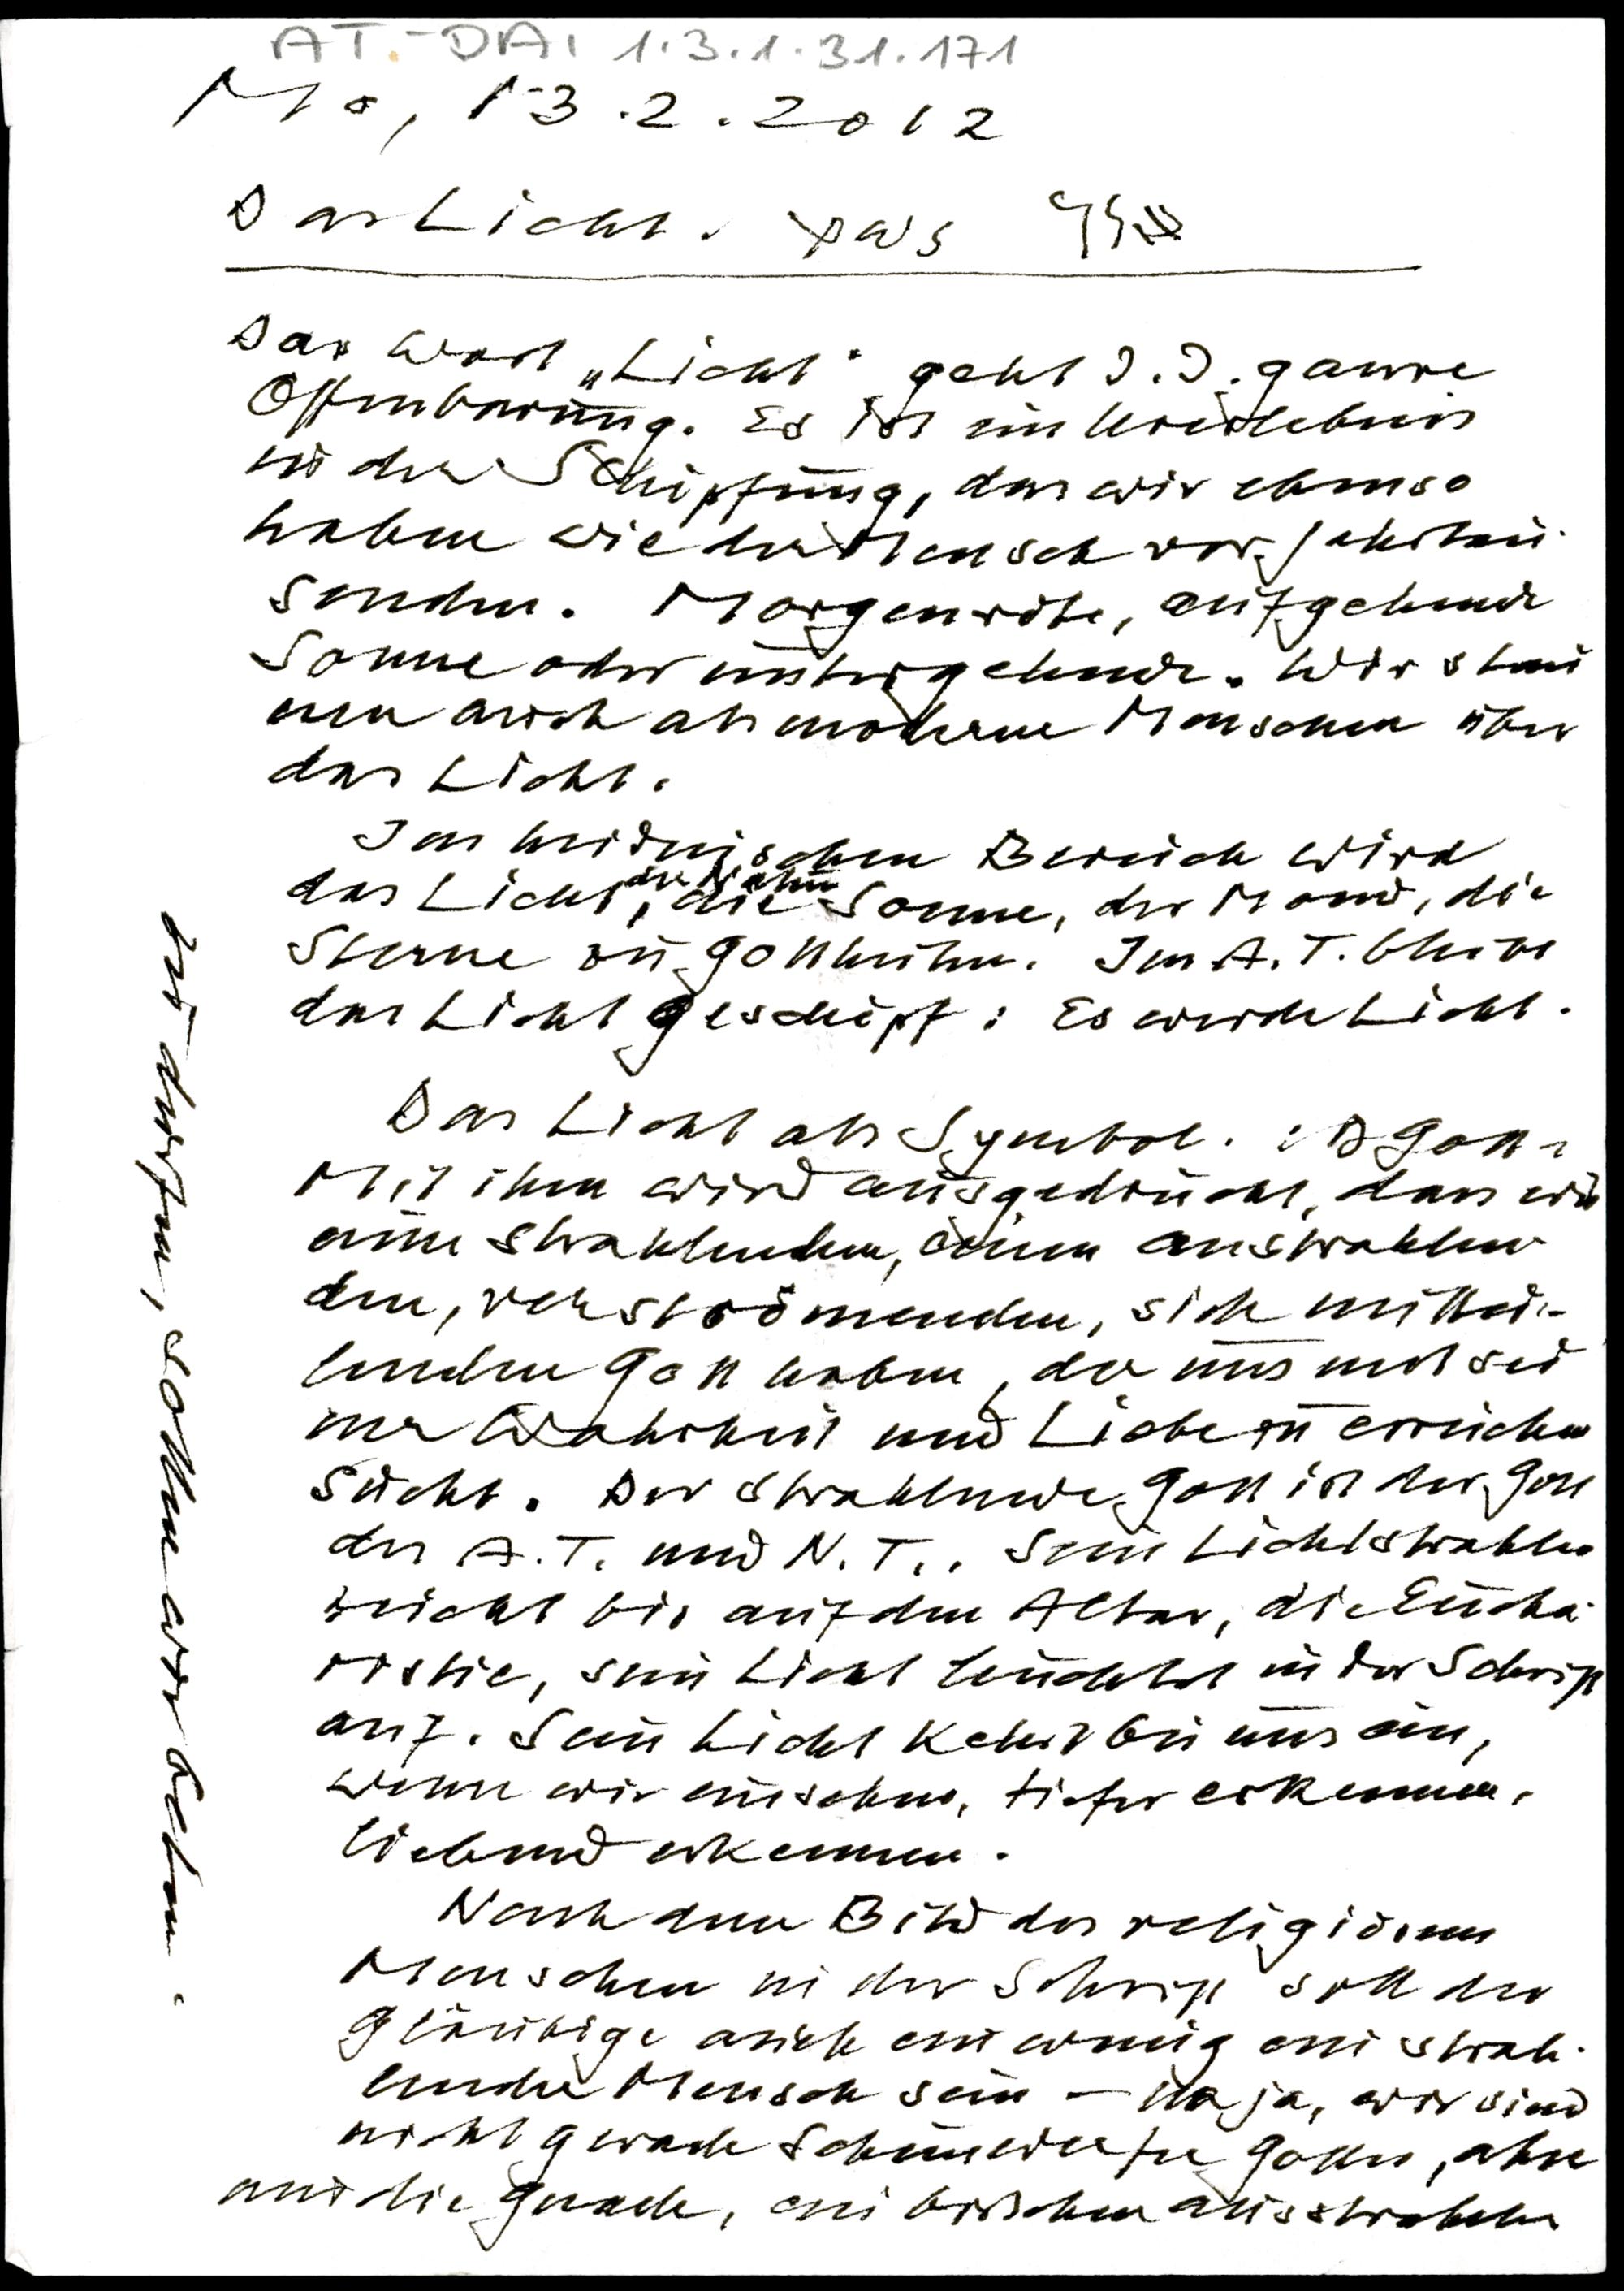 AT.-DA: 1.3.1.31.171
Mo, 13.2.2012
Das Licht. φῶς
Das Wort „Licht“ geht d. d. ganze
Offenbarung. Es ist ein Urerlebnis
in der Schöpfung, das wir ebenso
haben wie der Mensch vor Jahrtau-
senden. Morgenröte, aufgehende
Sonne oder untergehende. Wir stau
nen auch als moderne Menschen über
das Licht.
Im heidnischen Bereich wird
das Licht, die Sonne, der Mond, die
Sterne zu Gottheiten. Im A.T. bleibt
das Licht Geschöpf: Es werde Licht.
Das Licht als Symbol. Gott.
Mit ihm wird ausgedrückt, dass wir
einen strahlenden, einen ausstrahlen
den, verströmenden, sich mittei-
lenden Gott haben, der uns mit sei
ner Wahrheit und Liebe zu erreichen
sucht. Der strahlende Gott ist der Gott
des A.T. und N.T.. Sein Lichtstrahlen
reicht bis auf den Altar, die Eucha-
ristie, sein Licht leuchtet in der Schrift
auf. Sein Licht kehrt bei uns ein,
wenn wir einsehen, tiefer erkennen,
liebend erkennen.
Nach dem Bild des religiösen
Menschen in der Schrift soll der
Gläubige auch ein wenig ein strah-
lender Mensch sein – na ja, wir sind
nicht gerade Scheinwerfer Gottes, aber
um die Gnade, ein bisschen ausstrahlen
zu dürfen, sollten wir beten.